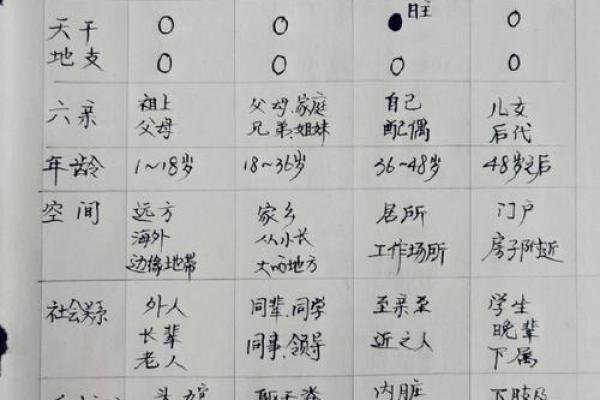 日主
天干 〇 〇 ● 〇
地支 〇 〇 〇 〇
六亲 祖上 父母.家庭 自己 儿女
父母 兄弟.姐妹 配偶 后代
年龄 1~18岁 18~36岁 36~48岁 48岁之后
空间 远方 家乡 居所 门户
海外 从小长 工作场所 房子附近
边缘地带 大的地方
社会关系 外人 同辈.同学 至亲至 学生
长辈 同事.领导 近之人 晚辈
老人 下属
内脏